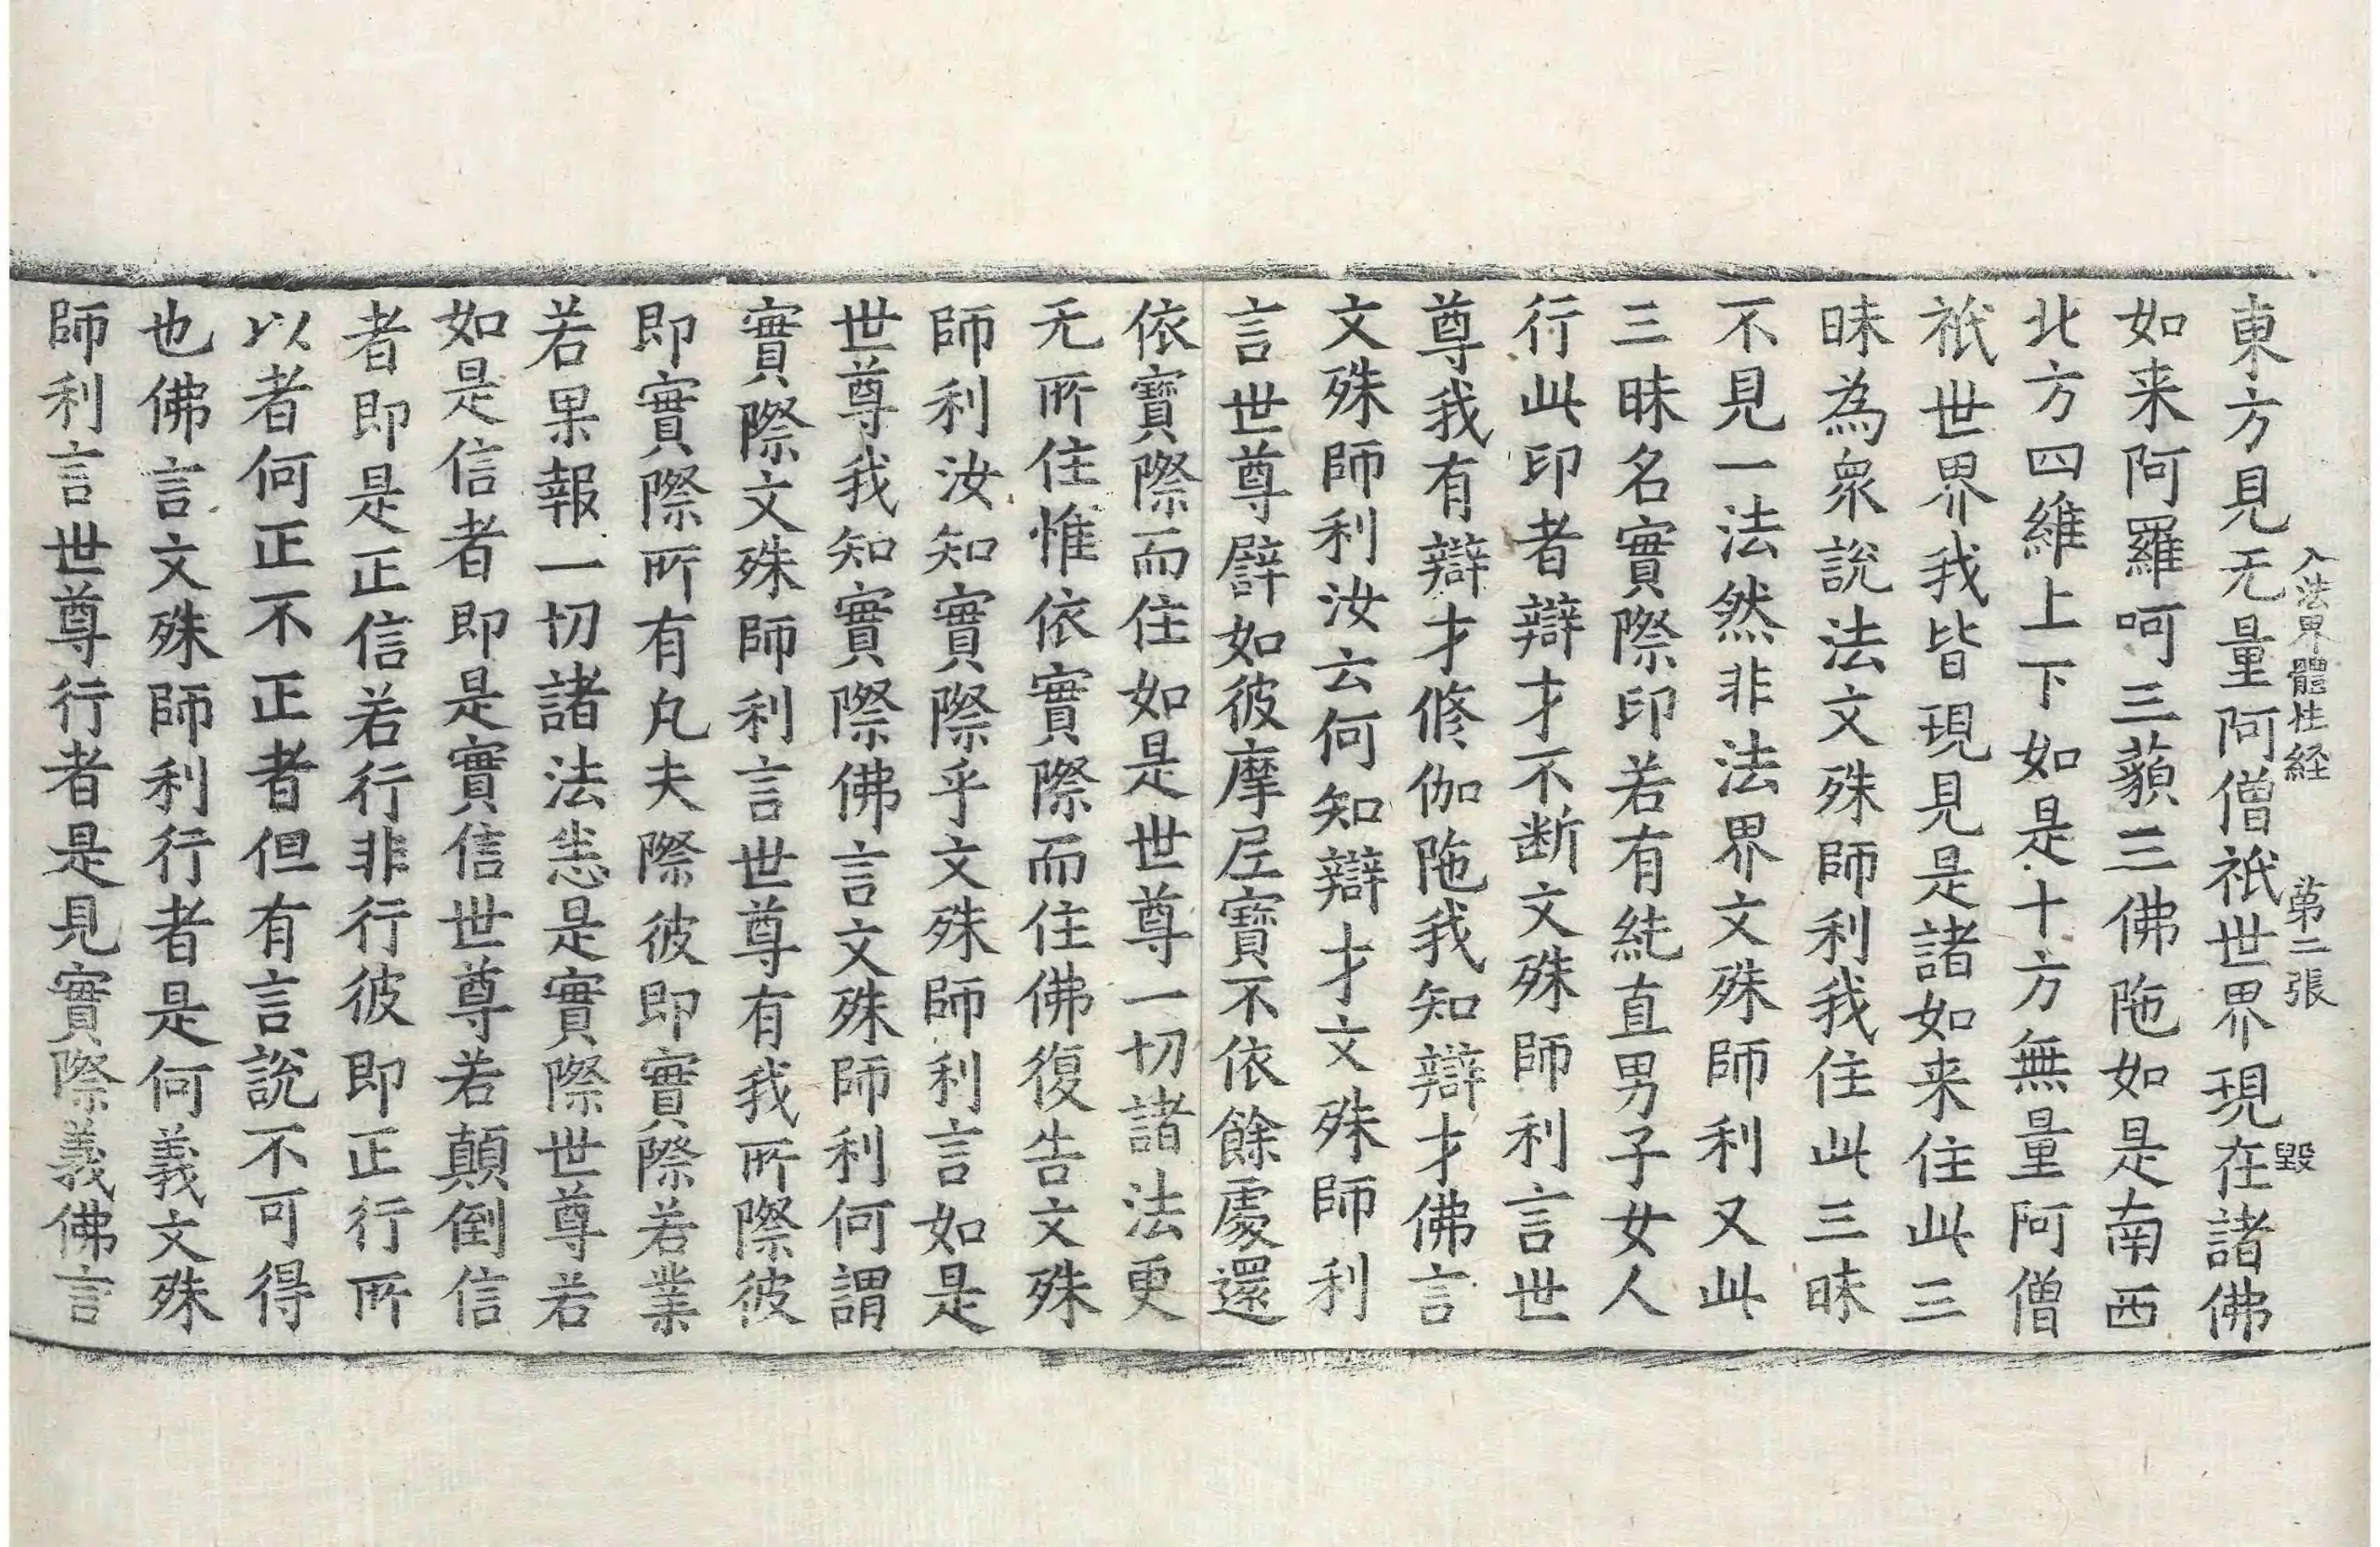 入法界體性経　第二張　毀
東方見无量阿僧祇世界現在諸佛
如来阿羅呵三藐三佛陁如是南西
北方四維上下如是十方無量阿僧
祇世界我皆現見是諸如来住此三
昧為衆說法文殊師利我住此三昧
不見一法然非法界文殊師利又此
三昧名實際印若有純直男子女人
行此印者辯才不断文殊師利言世
尊我有辯才修伽陁我知辯才佛言
文殊師利汝云何知辯才文殊師利
言世尊譬如彼摩尼寶不依餘處還
依寶際而住如是世尊一切諸法更
无所住惟依實際而住佛復告文殊
師利汝知實際乎文殊師利言如是
世尊我知實際佛言文殊師利何謂
實際文殊師利言世尊有我所際彼
即實際所有凡夫際彼即實際若業
若果報一切諸法悉是實際世尊若
如是信者即是實信世尊若顛倒信
者即是正信若行非行彼即正行所
以者何正不正者但有言說不可得
也佛言文殊師利行者是何義文殊
師利言世尊行者是見實際義佛言